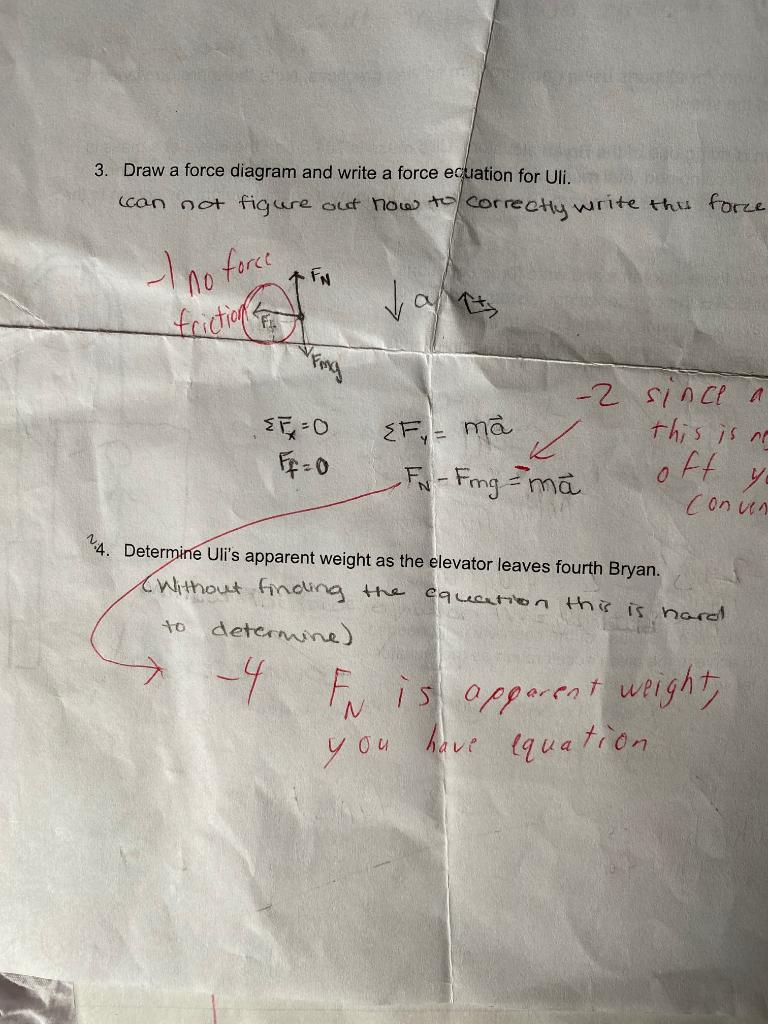 3. Draw a force diagram and write a force equation for Uli.
(can not figure out how to correctly write this force
-1 no force
friction
FN
Ff
a
Fmg
-2 since a
this is ne
off yo
conven
ΣF⃗x = 0
ΣFy = ma⃗
Ff = 0
FN - Fmg = -ma⃗
2
4. Determine Uli's apparent weight as the elevator leaves fourth Bryan.
(Without finding the equation this is hard
to determine)
-4 FN is apparent weight,
you have equation